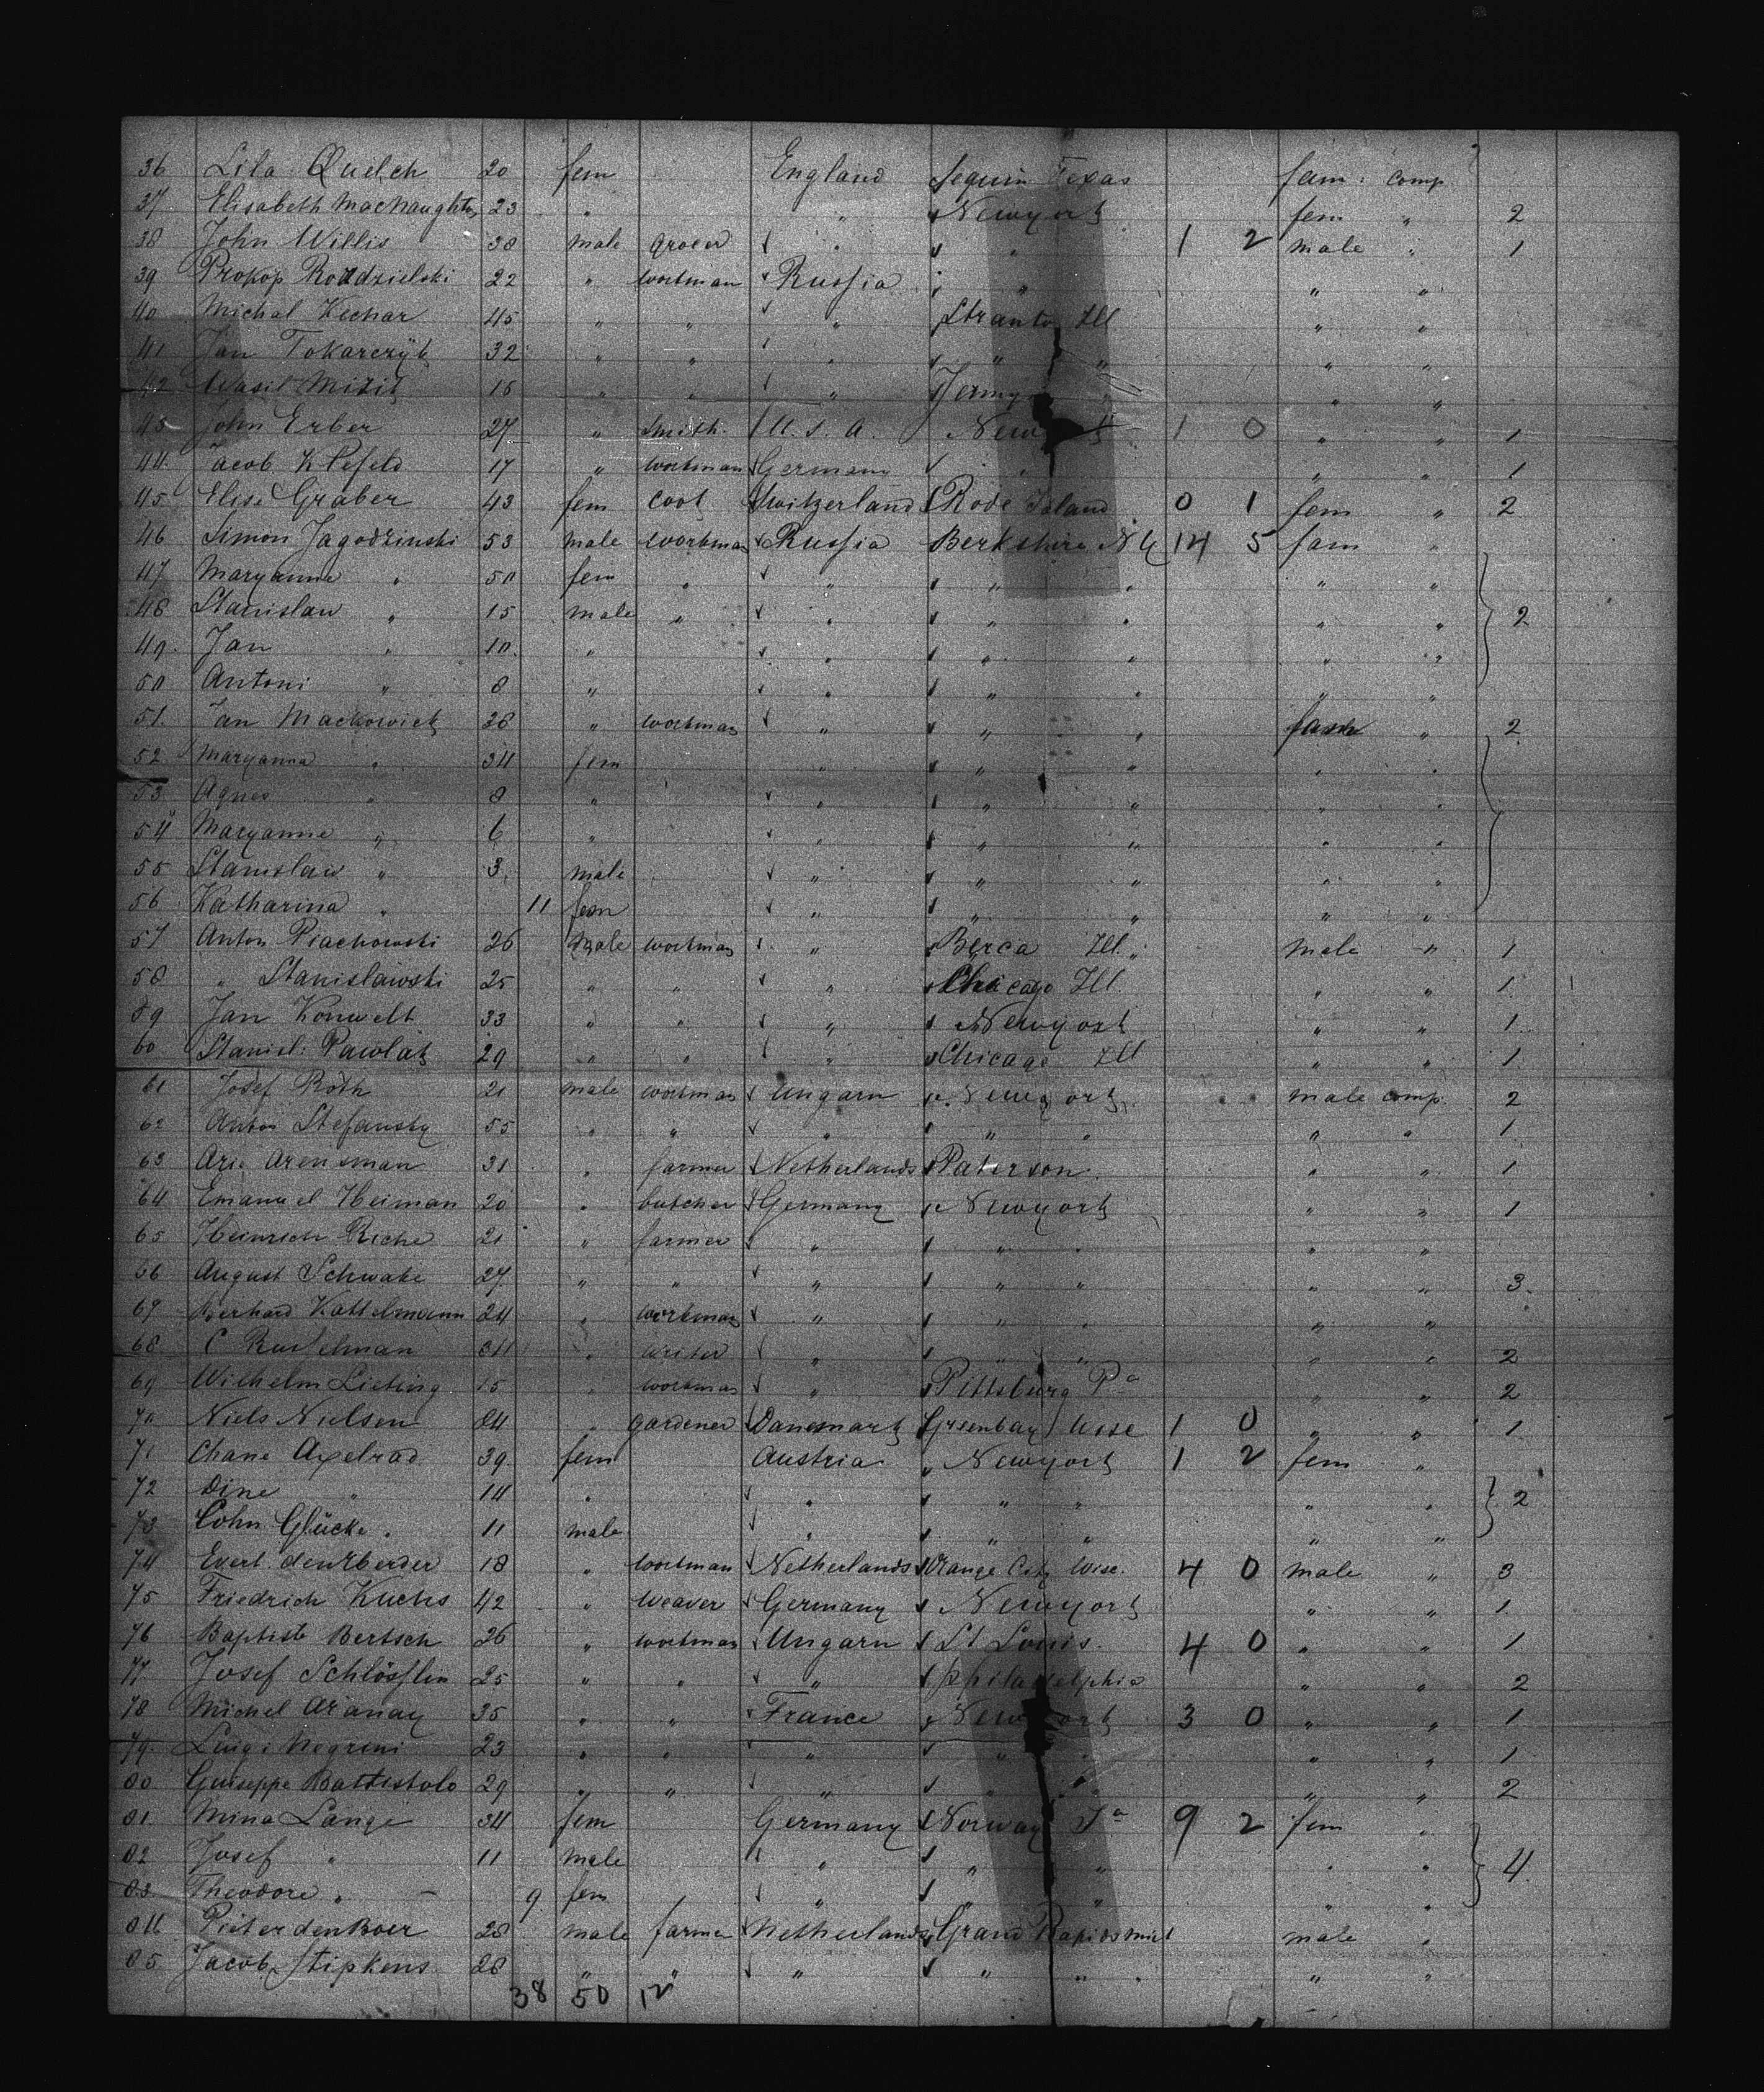 36 Lila Quelch 20 fem England Seguin Texas fam: comp.
37 Elisabeth MacNaughton 23 " " Newyork fem " 2
38 John Willis 38 male grocer " " 1 2 male " 1
39 Prokop Roddzielski 22 " workman Russia " " "
40 Michal Kechar 45 " " " Stranton Ill " "
41 Jan Tokarczyk 32 " " " " " " "
42 Wasil 18 " " " " "
43 John Erber 27 " Smith U. S. A. New 1 0 " " 1
44 Jacob Klefeld 17 " workman Germany " " " 1
45 Elise Graber 43 fem cook Switzerland Rode Island 0 1 fem " 2
46 Simon Jagodzinski 53 male workman Russia Berkshire NY 14 5 fam "
47 Maryanne " 50 fem " " " " " "
48 Stanislaw " 15 male " " " " " " 2
49 Jan " 10 " " " " " "
50 Antoni " 8 " " " " " "
51 Jan Mackowick 28 " workman " " " " 2
52 Maryanna " 34 fem " " " " "
53 Agnes " 8 " " " " " "
54 Maryanne " 6 " " " " " "
55 Stanislaw " 3 male " " " " "
56 Katharina " 11 fem " " " " "
57 Anton Piachowski 26 male workman " Berea Ill. male " 1
58 " Stanislawski 25 " " " Chicago Ill. " " 1
59 Jan Konwelt 33 " " " Newyork " " 1
60 Stanisl: Pawlak 29 " " " Chicago Ill " " 1
61 Josef Roth 21 male workman Ungarn Newyork male comp. 2
62 Anton Stefansky 55 " " " " " " " 1
63 Arie Arensman 31 " farmer Netherlands Paterson " " 1
64 Emanuel Heiman 20 " butcher Germany Newyork " " 1
65 Heinrich Riche 21 " farmer " " " " "
66 August Schwake 27 " " " " " " 3
67 Gerhard Kattelmann 24 " workman " " " " "
68 C 34 " writer " " " " " 2
69 Wilhelm Lieting 15 " workman " Pittsburg Pa " " 2
70 Niels Nielsen 84 " gardener Danemark Greenbay Wisc 1 0 " " 1
71 Chane Axelrad 39 fem Austria " Newyork 1 2 fem "
72 Dine " 14 " " " " " " 2
73 Cohn Glücke " 11 male " " " " "
74 Evert 18 " workman Netherlands Orange City Wisc. 4 0 male " 3
75 Friedrich Kuchs 42 " weaver Germany Newyork " " 1
76 Baptist Bertsch 26 " workman Ungarn St Louis. 4 0 " " 1
77 Josef Schlösslen 25 " " " Philadelphia " " 2
78 Michel Aranay 35 " " France Newyork 3 0 " " 1
79 Luigi Negrini 23 " " " " " " " 1
80 Guiseppe Battistolo 29 " " " " " " " 2
81 Mina Lange 34 fem Germany Norway Ia 9 2 fem "
82 Josef " 11 male " " " " " 4
83 Theodore " 9 fem " " " " "
84 Pieter den Boer 28 male farmer Netherlands Grand Rapids Mich male "
85 Jacob Stipkens 28 " " " " " " "
38 50 12